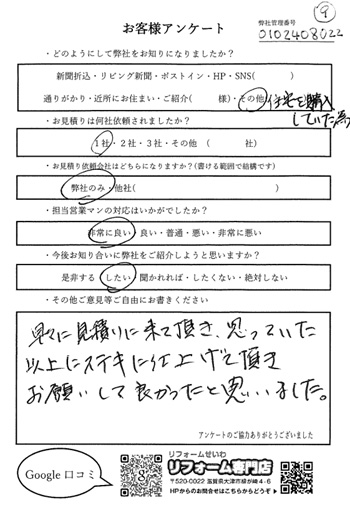 ⑨
お客様アンケート
弊社管理番号
0102408022
・どのようにして弊社をお知りになりましたか？
新聞折込・リビング新聞・ポストイン・HP・SNS( )
通りがかり・近所にお住まい・ご紹介( 様)・その他(住宅を購入
していた為
・お見積りは何社依頼されましたか？
1社・2社・3社・その他 ( 社)
・お見積り依頼会社はどちらになりますか？(書ける範囲で結構です)
弊社のみ・他社( )
・担当営業マンの対応はいかがでしたか？
非常に良い・良い・普通・悪い・非常に悪い
・今後お知り合いに弊社をご紹介しようと思いますか？
是非する・したい・聞かれれば・したくない・絶対しない
・その他ご意見等ご自由にお書きください
早々に見積りに来て頂き、思っていた
以上にステキに仕上げて頂き
お願いして良かったと思いました。
アンケートのご協力ありがとうございました
Google 口コミ
リフォームせいわ
リフォーム専門店
〒520-0022 滋賀県大津市柳が崎4-6
HPからのお問合せはこちらからどうぞ